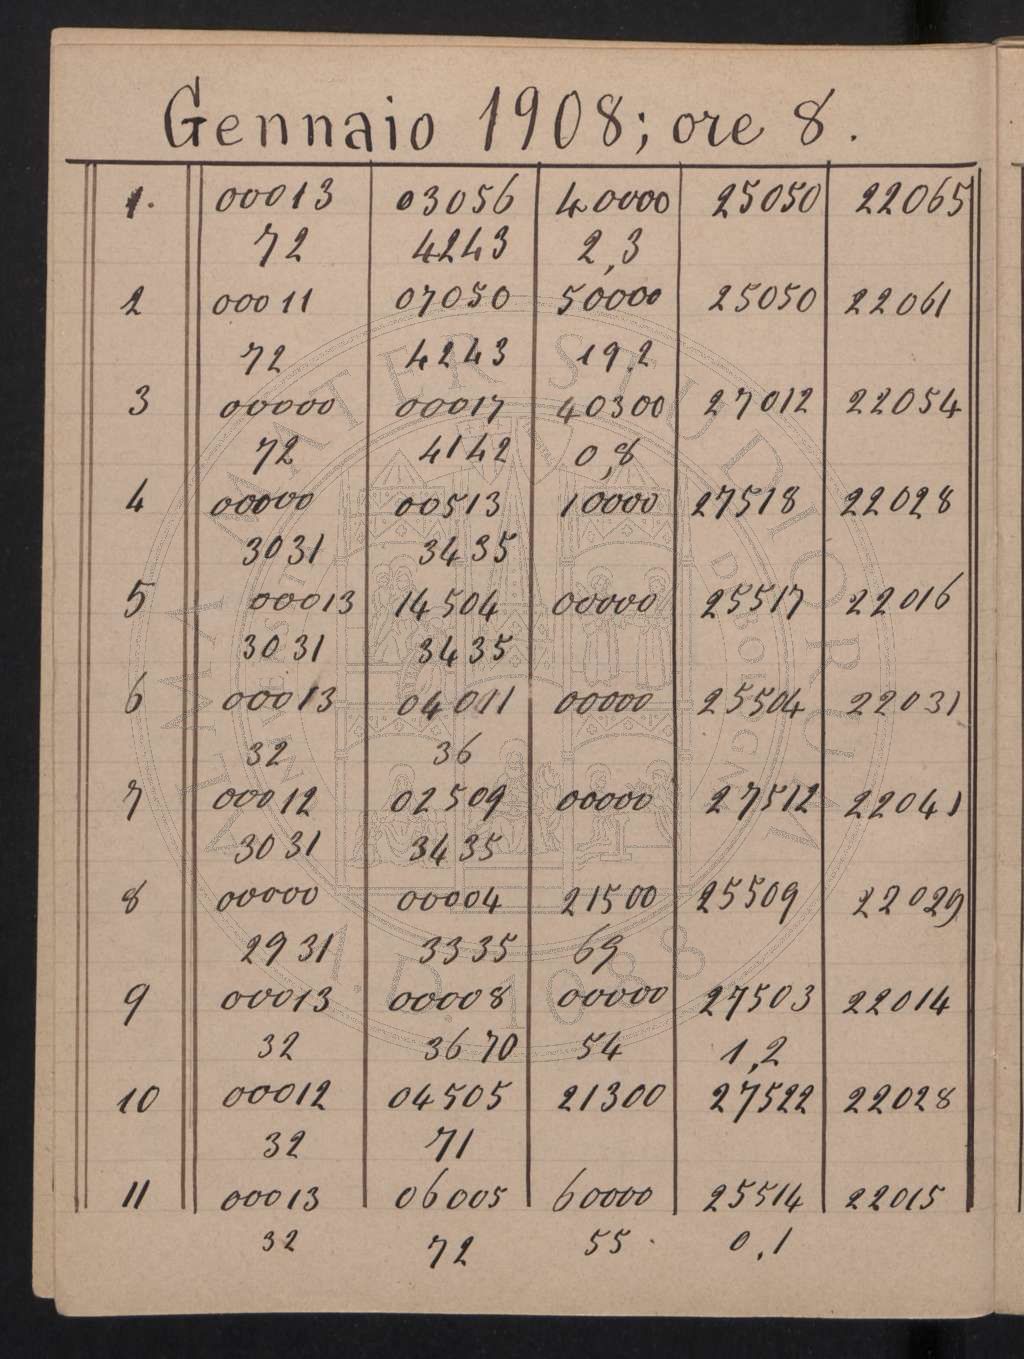 Gennaio 1908; ore 8.
1. 00013 03056 40000 25050 22065
72 4243 2,3
2 00011 07050 50000 25050 22061
72 4243 19,2
3 00000 00017 40300 27012 22054
72 4142 0,8
4 00000 00513 10000 27518 22028
3031 3435
5 00013 14504 00000 25517 22016
3031 3435
6 00013 04011 00000 25504 22031
32 36
7 00012 02509 00000 27512 22041
3031 3435
8 00000 00004 21500 25509 22029
2931 3335 69
9 00013 00008 00000 27503 22014
32 3670 54 1,2
10 00012 04505 21300 27522 22028
32 71
11 00013 06005 60000 25514 22015
32 72 55 0,1